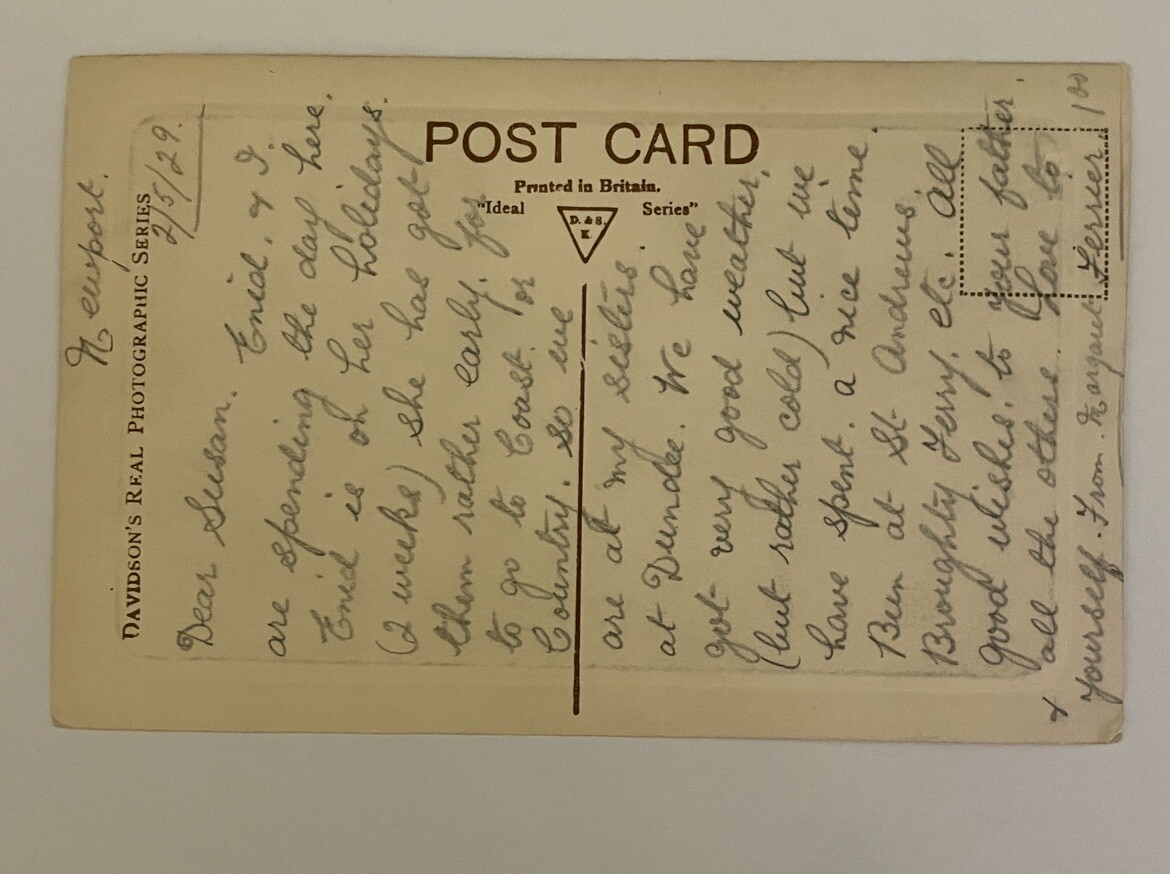 DAVIDSON'S REAL PHOTOGRAPHIC SERIES
POST CARD
Printed in Britain.
"Ideal Series"
D. & S.
K
Newport.
2/5/29.
Dear Susan. Enid. & I.
are spending the day here.
Enid is on her holidays.
(2 weeks) she has got
them rather early. for
to go to Coast. or
Country. so we
are at my sisters.
at Dundee. We have
got very good weather.
(but rather cold) but we
have spent. a nice time.
Been at St. Andrews
Broughty Ferry. etc. All
good wishes. to your father
& all the others. Love to
yourself. From. Margaret Ferrier.
100